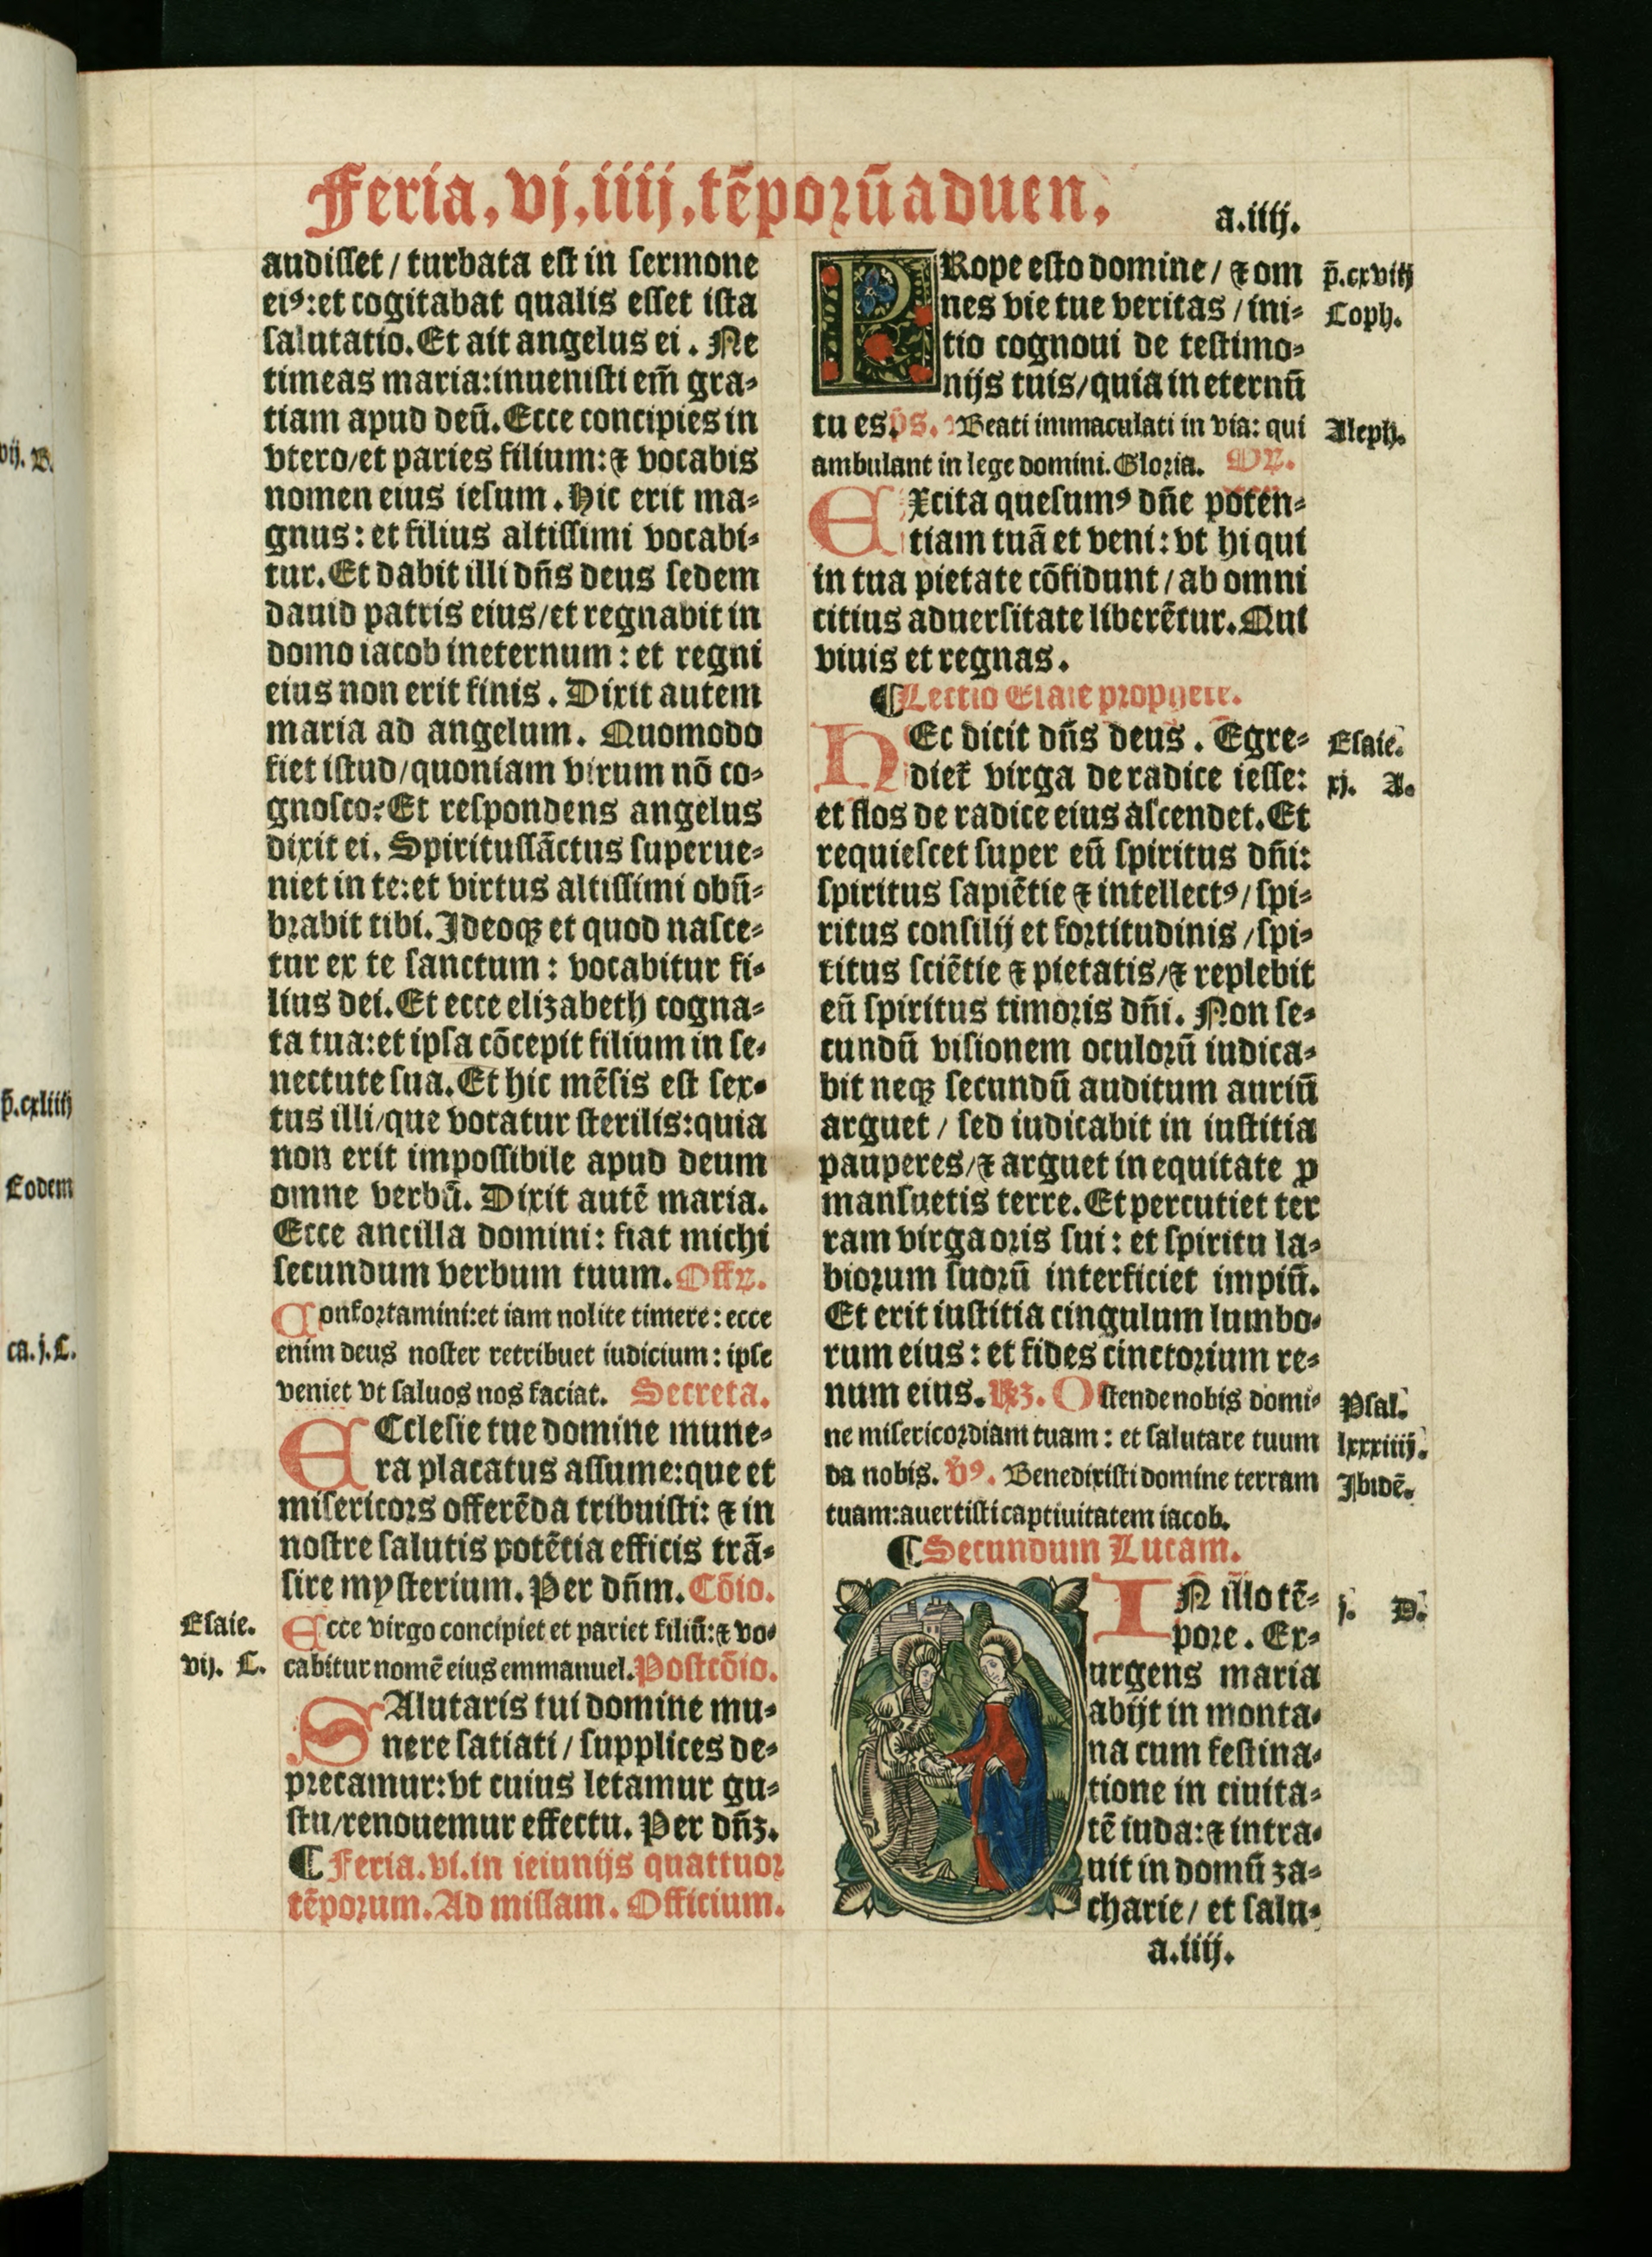 Feria. vj. iiij. tēporū aduen.
a.iiij.
audisset / turbata est in sermone
eiꝰ: et cogitabat qualis esset ista
salutatio. Et ait angelus ei. Ne
timeas maria: inuenisti em̄ gra-
tiam apud deū. Ecce concipies in
vtero / et paries filium: ⁊ vocabis
nomen eius iesum. Hic erit ma-
gnus: et filius altissimi vocabi-
tur. Et dabit illi dn̄s deus sedem
dauid patris eius / et regnabit in
domo iacob ineternum: et regni
eius non erit finis. Dixit autem
maria ad angelum. Quomodo
fiet istud / quoniam virum nō co-
gnosco: Et respondens angelus
dixit ei. Spiritussāctus superue-
niet in te: et virtus altissimi obū-
brabit tibi. Ideoqꝫ et quod nasce-
tur ex te sanctum: vocabitur fi-
lius dei. Et ecce elizabeth cogna-
ta tua: et ipsa cōcepit filium in se-
nectute sua. Et hic mēsis est sex-
tus illi / que vocatur sterilis: quia
non erit impossibile apud deum
omne verbū. Dixit autē maria.
Ecce ancilla domini: fiat michi
secundum verbum tuum. Offꝝ.
Confortamini: et iam nolite timere: ecce
enim deus noster retribuet iudicium: ipse
veniet vt saluos nos faciat. Secreta.
ECclesie tue domine mune-
ra placatus assume: que et
misericors offerēda tribuisti: ⁊ in
nostre salutis potētia efficis trā-
sire mysterium. Per dn̄m. Cōio.
Esaie.
Ecce virgo concipiet et pariet filiū: ⁊ vo-
vij. C.
cabitur nomē eius emmanuel. Postcōio.
SAlutaris tui domine mu-
nere satiati / supplices de-
precamur: vt cuius letamur gu-
stu / renouemur effectu. Per dn̄ꝫ.
¶ Feria. vi. in ieiunijs quattuor
tēporum. Ad missam. Officium.
PRope esto domine / ⁊ om
p̄. cxviij
nes vie tue veritas / ini-
Coph.
tio cognoui de testimo-
nijs tuis / quia in eternū
tu es. p̄s. Beati immaculati in via: qui
Aleph.
ambulant in lege domini. Gloria. Oꝝ.
EXcita quesumꝰ dn̄e poten-
tiam tuā et veni: vt hi qui
in tua pietate cōfidunt / ab omni
citius aduersitate liberētur. Qui
viuis et regnas.
¶ Lectio Esaie prophete.
HEc dicit dn̄s deus. Egre-
Esaie.
diet᷑ virga de radice iesse:
xj. A.
et flos de radice eius ascendet. Et
requiescet super eū spiritus dn̄i:
spiritus sapiētie ⁊ intellectꝰ / spi-
ritus consilij et fortitudinis / spi-
ritus sciētie ⁊ pietatis / ⁊ replebit
eū spiritus timoris dn̄i. Non se-
cundū visionem oculorū iudica-
bit neqꝫ secundū auditum auriū
arguet / sed iudicabit in iustitia
pauperes / ⁊ arguet in equitate ꝓ
mansuetis terre. Et percutiet ter
ram virga oris sui: et spiritu la-
biorum suorū interficiet impiū.
Et erit iustitia cingulum lumbo-
rum eius: et fides cinctorium re-
num eius. R̷ꝫ. Ostende nobis domi-
Psal.
ne misericordiam tuam: et salutare tuum
lxxxiiij.
da nobis. v̄ꝰ. Benedixisti domine terram
Ibidē.
tuam: auertisti captiuitatem iacob.
¶ Secundum Lucam.
IN illo tē-
j. D.
pore. Ex-
urgens maria
abijt in monta-
na cum festina-
tione in ciuita-
tē iuda: ⁊ intra-
uit in domū za-
charie / et salu-
a.iiij.
vij. B.
p̄. cxliiij
Eodem
ca. j. C.